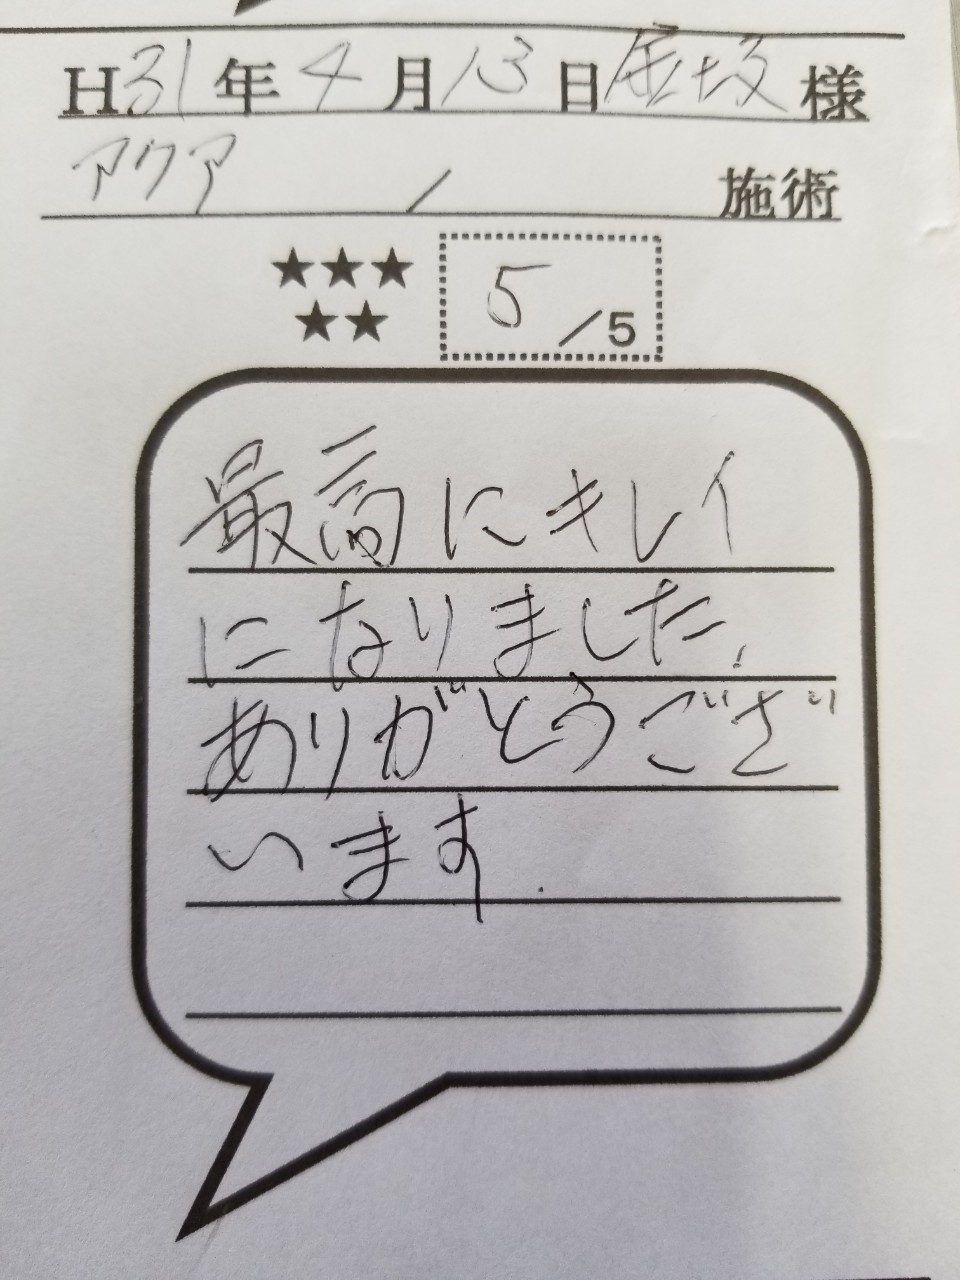 H31年4月13日 様
アクア / 施術
★★★
★★
5/5
最高にキレイ
になりました!
ありがとうござ
います.